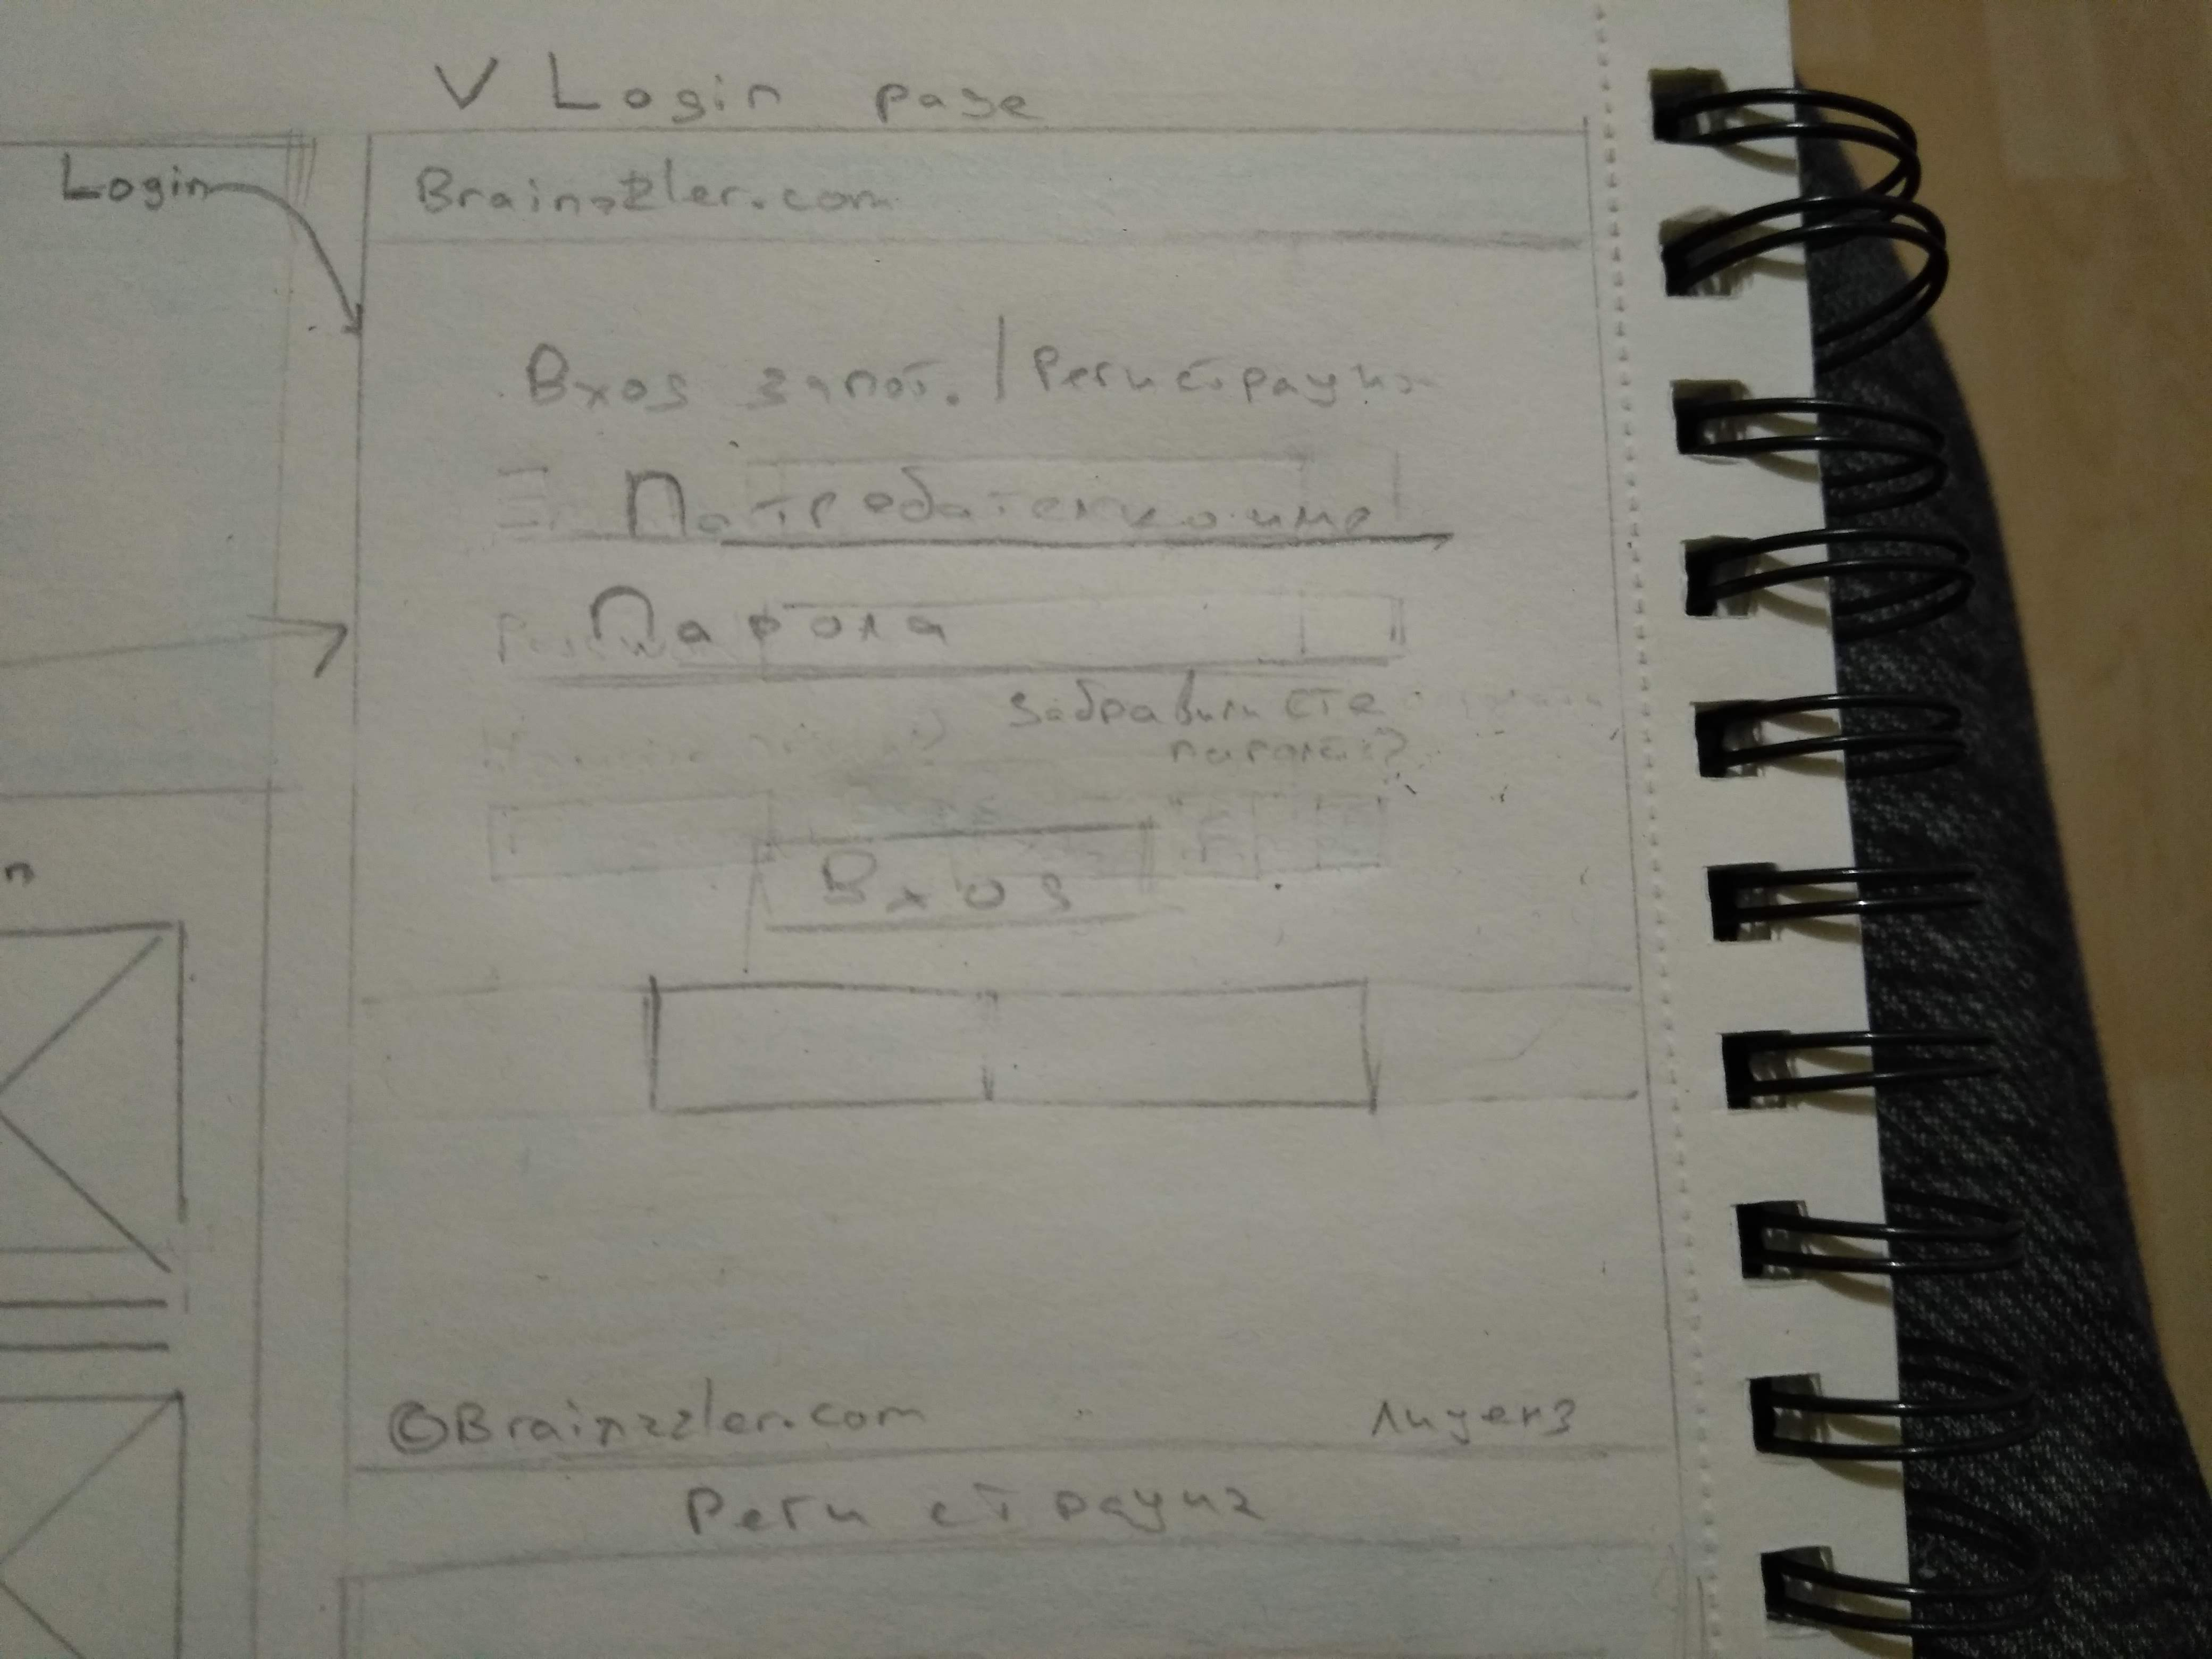 V Login page
Login
Brainzzler.com
Вход за пот. | Регистрация
Потребателско име
Парола
Забравили сте
парола?
Вход
©Brainzzler.com
Лиценз
Регистрация